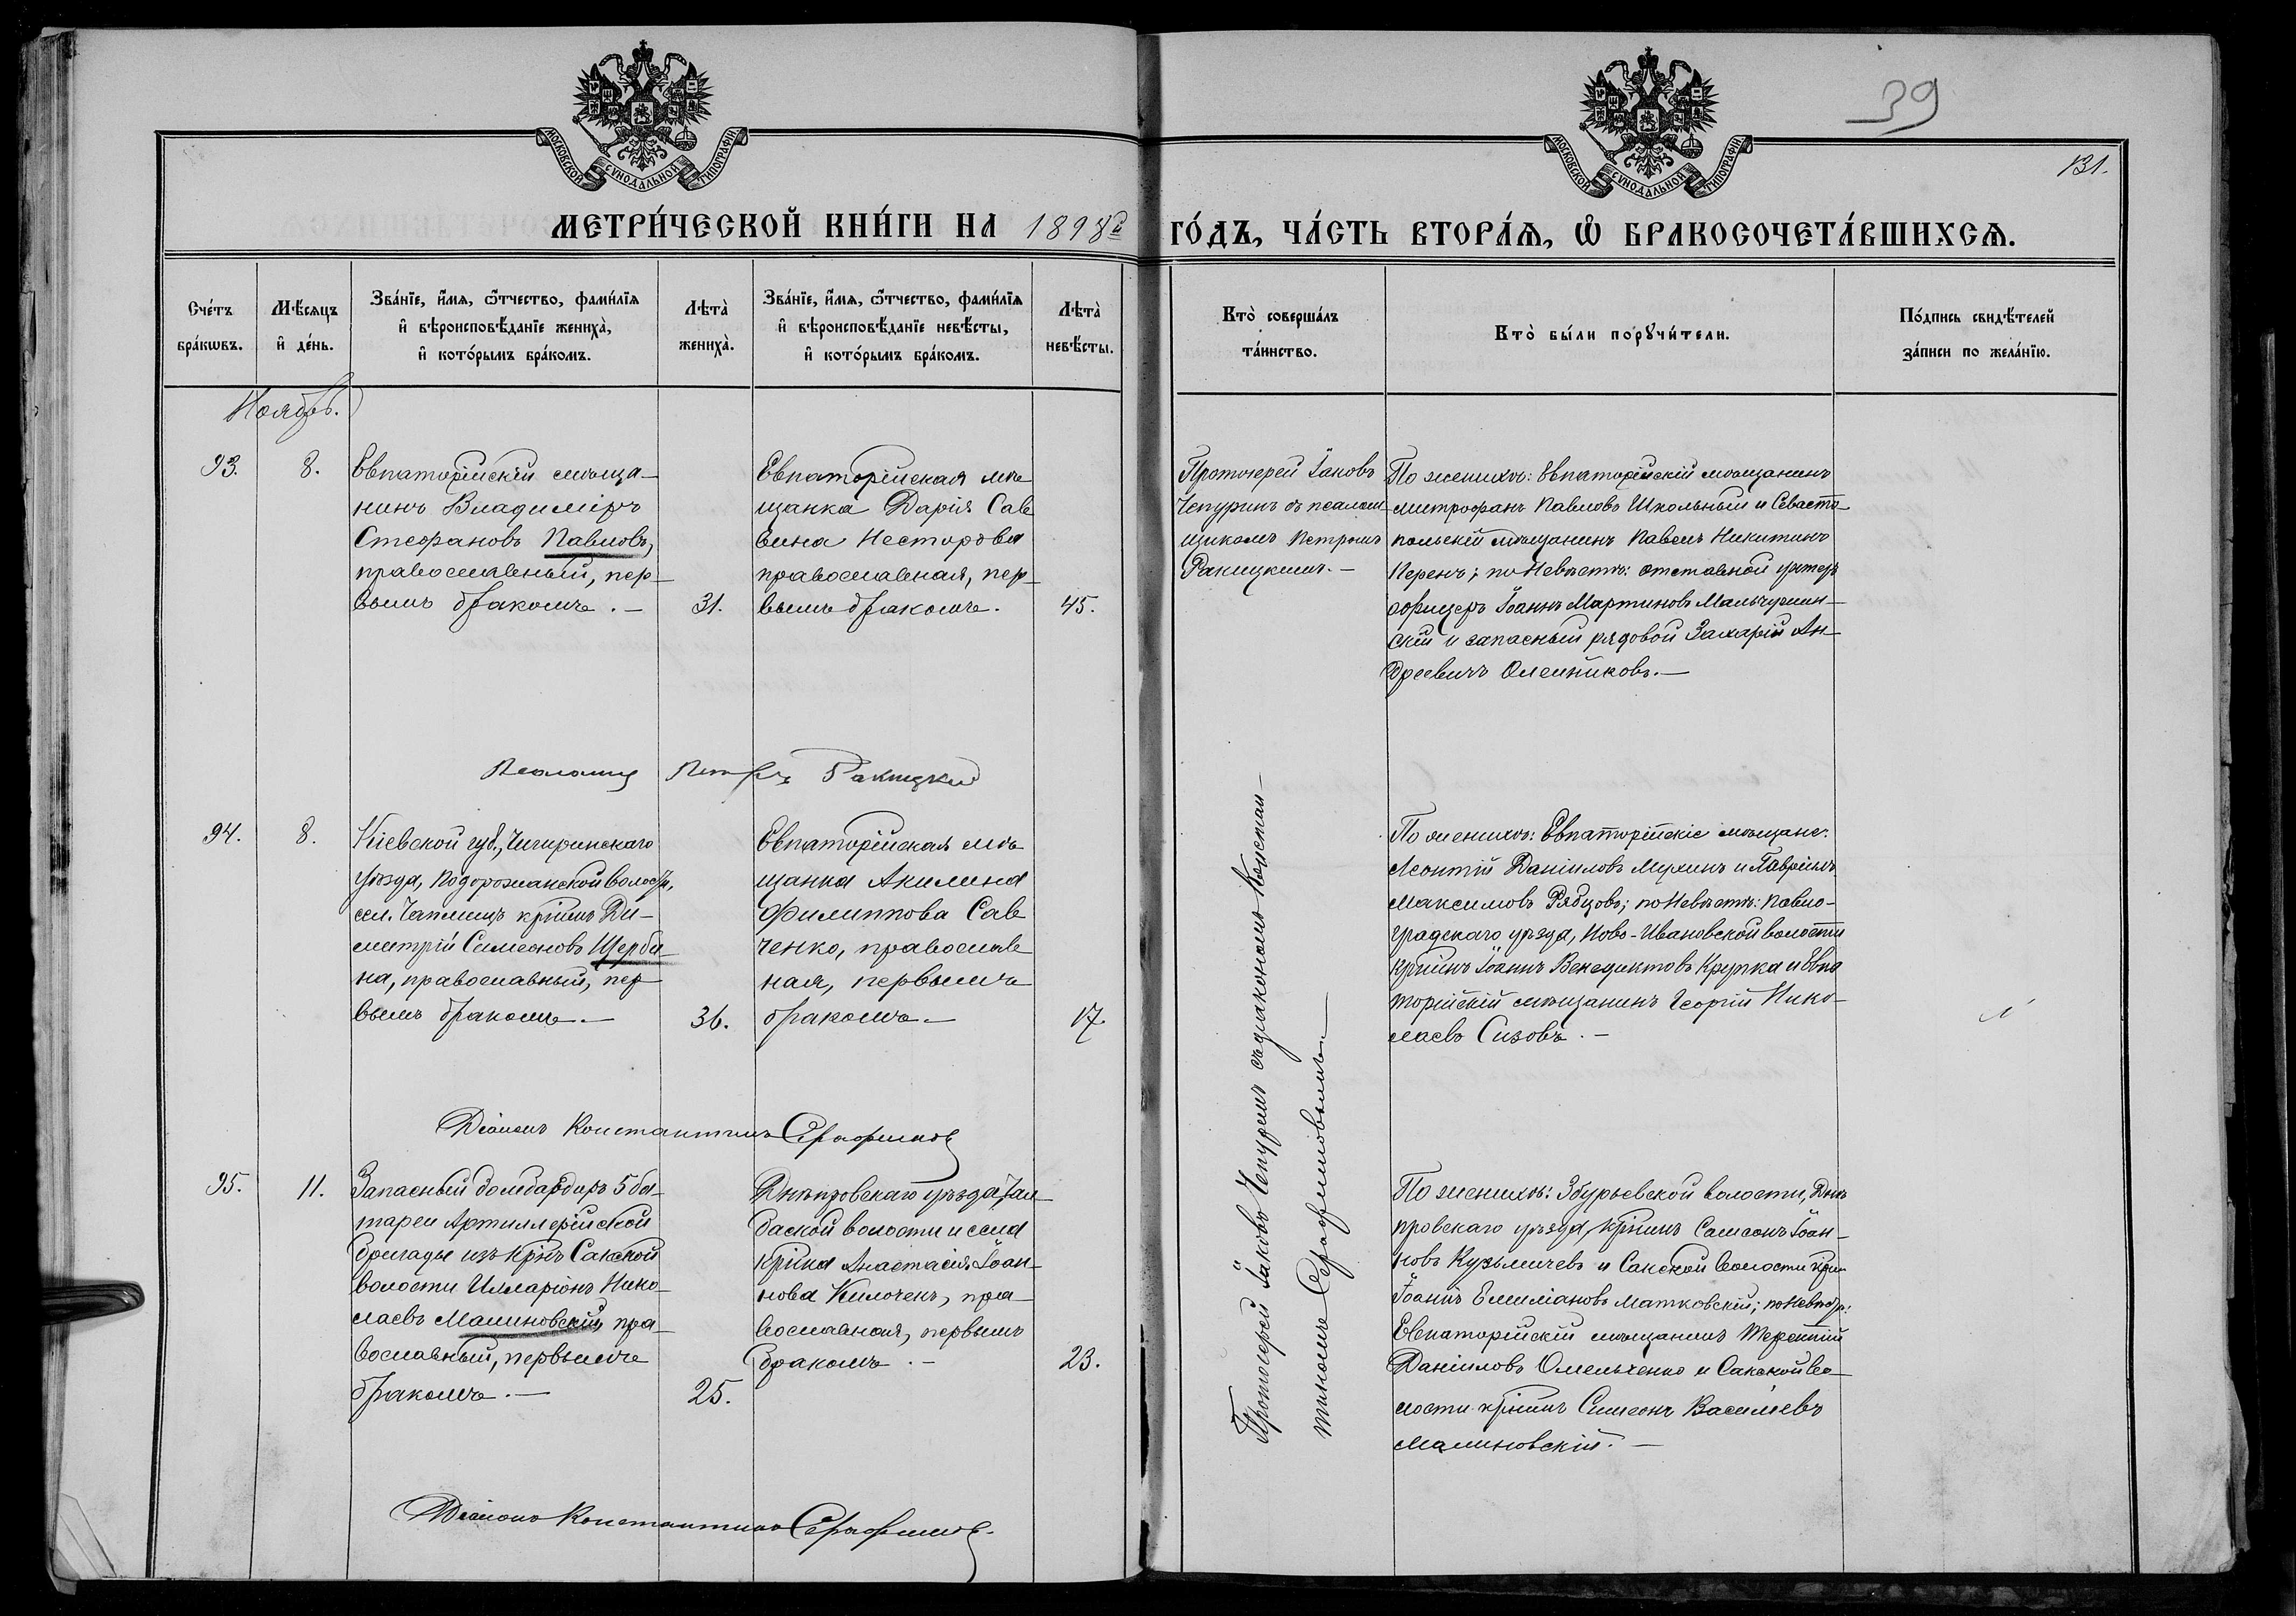 МОСКОВСКОЙ СУНОДАЛЬНОЙ ТИПОГРАФІИ
МОСКОВСКОЙ СУНОДАЛЬНОЙ ТИПОГРАФІИ
39
131.
МЕТРИ́ЧЕСКОЙ КНИ́ГИ НА 1898й ГО́ДЪ, ЧА́СТЬ ВТОРА́Ѧ, Ѡ҆ БРАКОСОЧЕТА́ВШИХСѦ.
Сче́тъ
бра́кѡвъ.
Мѣ́сѧцъ
и҆ де́нь.
Зва́нїе, и҆́мѧ, ѻ҆́тчество, фами́лїѧ
и҆ вѣроисповѣ́данїе жениха̀,
и҆ кото́рымъ бра́комъ.
Лѣта̀
жениха̀.
Зва́нїе, и҆́мѧ, ѻ҆́тчество, фами́лїѧ
и҆ вѣроисповѣ́данїе невѣ́сты,
и҆ кото́рымъ бра́комъ.
Лѣта̀
невѣ́сты.
Кто̀ соверша́лъ
та́инство.
Кто̀ бы́ли порꙋчи́тели.
По́дпись свидѣ́телей
за́писи по жела́нїю.
Ноябрь.
93.
8.
Евпаторійскій мѣща-
нинъ Владиміръ
Стефановъ Павловъ,
православный, пер-
вымъ бракомъ.-
31.
Евпаторійская мѣ
щанка Дарія Сав
вина Несторова
православная, пер-
вымъ бракомъ.
45.
Протоіерей Іаковъ
Чепуринъ съ псалом-
щикомъ Петромъ
Ракицкимъ.-
По женихѣ: Евпаторійскій мѣщанинъ
Митрофанъ Павловъ Школьный и Севасто-
польскій мѣщанинъ Павелъ Никитинъ
; по Невѣстѣ: отставной унтеръ
офицеръ Іоаннъ Мартиновъ
скій и запасный рядовой Захарій Ан-
дреевичъ Олейниковъ.-
Псаломщ Петръ Ракицкій
94.
8.
Кіевской губ., Чигиринскаго
уѣзда, Подорожанской волости,
сел. крнинъ Ди-
митрій Симеоновъ Щерби-
на, православный, пер
вымъ бракомъ.-
36.
Евпаторійская мѣ
щанка Акилина
Филиппова Сав
ченко, православ
ная, первымъ
бракомъ.-
17.
Протоіерей Іаковъ Чепуринъ съ діакономъ Констан-
тиномъ Серафимовымъ.-
По женихѣ: Евпаторійскіе мѣщане:
Леонтій Даніиловъ Мухинъ и Гавріилъ
Максимовъ Рябцовъ; по Невѣстѣ: Павло-
градскаго уѣзда, Ново-Ивановской волости
крнинъ Іоаннъ Венедиктовъ Крупка и Евпа
торійскій мѣщанинъ Георгій Нико-
лаевъ Сизовъ.-
Діаконъ Константинъ Серафимовъ
95.
11.
Запасный бомбардиръ 5 ба-
тареи Артиллерійской
бригады изъ крнъ Сакской
волости Илларіонъ Нико-
лаевъ Малиновскій, пра-
вославный, первымъ
бракомъ.-
25.
Днѣпровскаго уѣзда,
волости и села
крнка Анастасія Іоан-
нова , пра-
вославная, первымъ
бракомъ.-
23.
По женихѣ: Збурьевской волости, Днѣ
провскаго уѣзда, крнинъ Самсонъ Іоан-
новъ Кузьмичевъ и Сакской волости крнин
Іоаннъ Емиліановъ Матковскій; по Невѣстѣ:
Евпаторійскій мѣщанинъ Терентій
Даніиловъ Омельченко и Сакской во-
лости крнинъ Симеонъ Васильевъ
Малиновскій.-
Діаконъ Константинъ Серафимовъ.